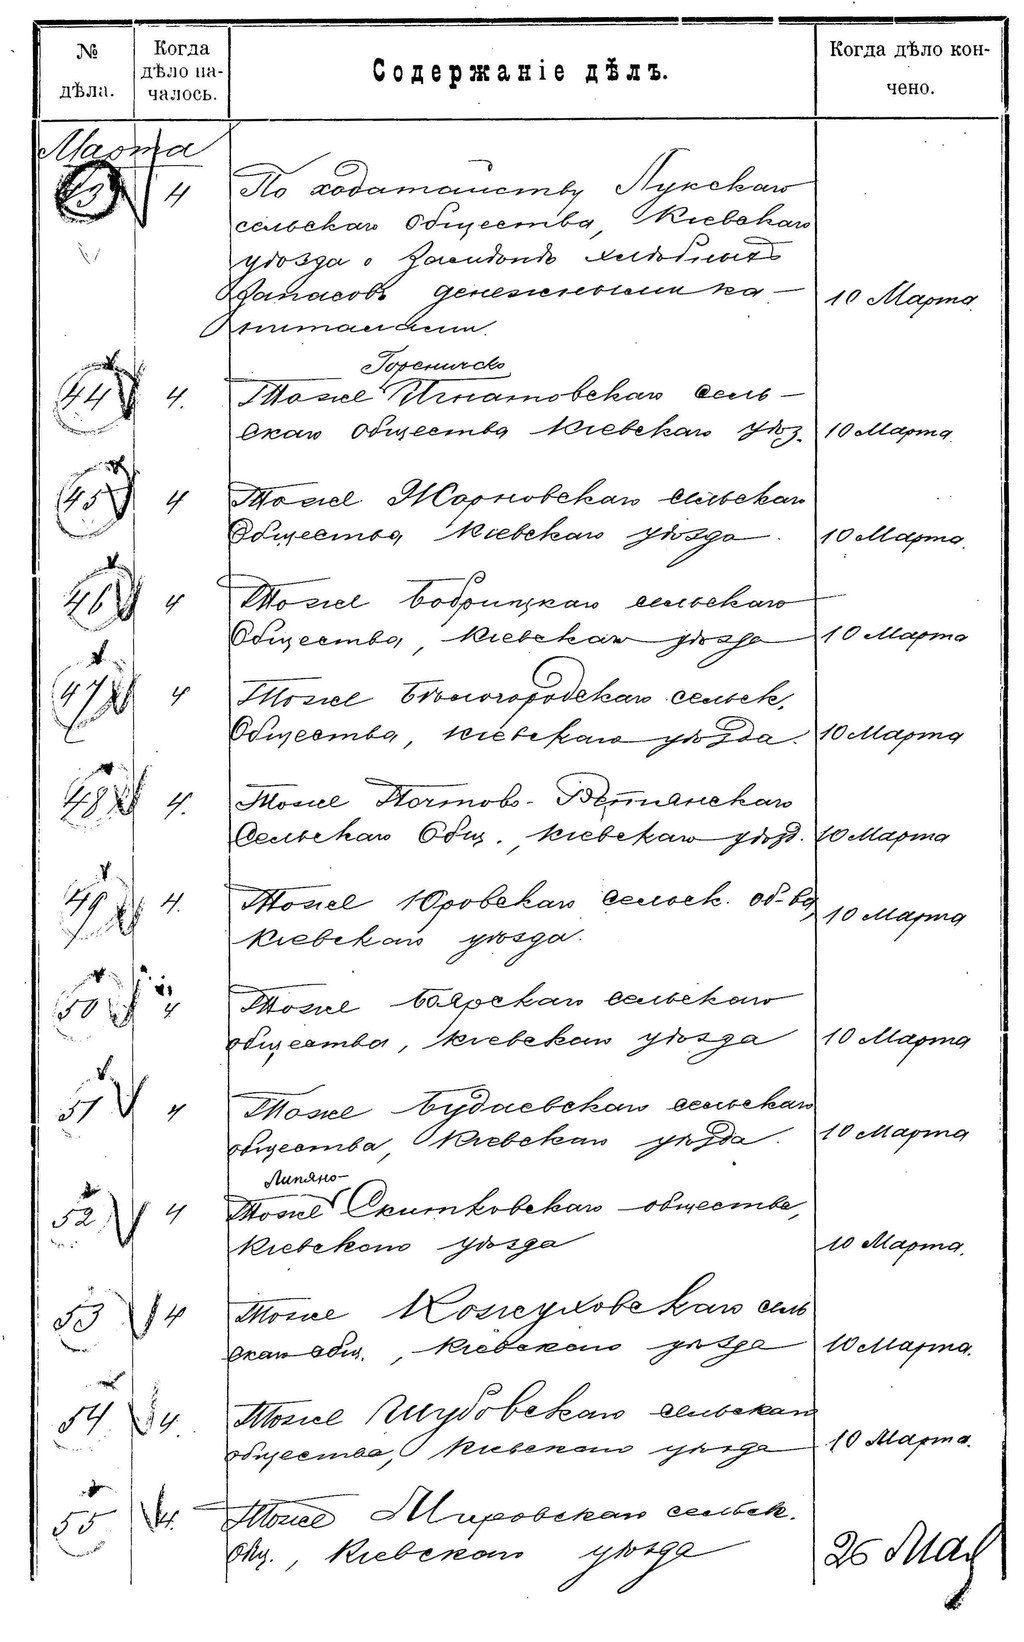 № дѣла.
Когда дѣло началось.
Содержаніе дѣлъ.
Когда дѣло кончено.
Марта
43 4 По ходатайству Лукскаго
сельскаго общества, Кіевскаго
уѣзда о замѣнѣ хлѣбныхъ
запасовъ денежными ка-
10 Марта
питалами.
Гореничско
44 4. Тоже Игнатовскаго сель-
скаго общества Кіевскаго уѣз. 10 Марта
45 4 Тоже Жорновскаго сельскаго
Общества Кіевскаго уѣзда. 10 Марта.
46 4 Тоже Бобрицкаго сельскаго
Общества, Кіевскаго уѣзда 10 Марта
47 4 Тоже Бѣлогородскаго сельск.
Общества, Кіевскаго уѣзда. 10 Марта
48 4. Тоже Почтово-Вѣтянскаго
Сельскаго Общ., Кіевскаго уѣзд. 10 Марта
49 4. Тоже Юровскаго сельск. об-ва,
10 Марта
Кіевскаго уѣзда.
50 4 Тоже Боярскаго сельскаго
общества, Кіевскаго уѣзда 10 Марта
51 4 Тоже Будаевскаго сельскаго
общества, Кіевскаго уѣзда. 10 Марта
Липяно-
52 4 Тоже Скитковскаго общества,
Кіевскаго уѣзда 10 Марта.
53 4 Тоже Кожуховскаго сель
скаго общ., Кіевскаго уѣзда 10 Марта.
54 4. Тоже Шубовскаго сельскаго
общества, Кіевскаго уѣзда 10 Марта.
55 4. Тоже Мировскаго сельск.
общ., Кіевскаго уѣзда 26 Мая